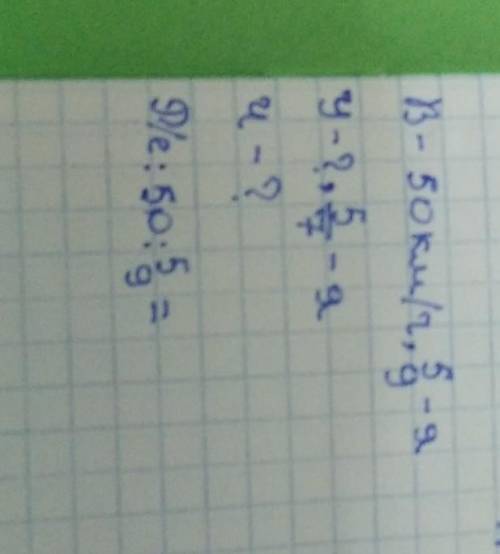 В - 50 км/ч, 5/9 - я
У - ?, 5/7 - я
и - ?
Р/е: 50 : 5/9 =